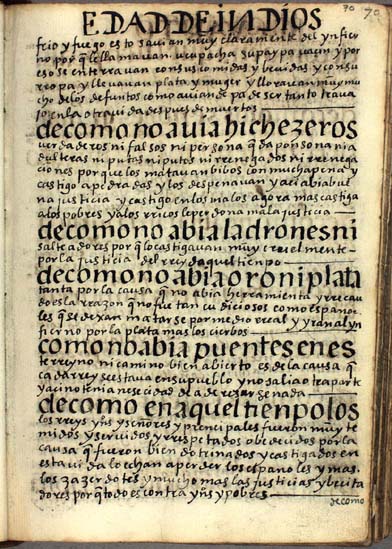 70 70
EDAD DE INDIOS
frio y fuego esto sauian muy claramente del ynfier
no porq̃ le llamauan ucupacha supaypa uacin y por
eso se enterrauan con sus comidas y beuidas y con su
rropa y lleuauan plata y muger y llorauan muy mu
cho de los defuntos como auian de paser tanto traua
jo en la otra uida despues de muertos
de como no auia hichezeros
uerdaderos ni falsos ni persona q̃ da ponsoña ni a
dulteras ni putas ni putos ni rrenegados ni rrenega
ciones porque los matauan bibos con mucha pena y
castigo a pedradas y los despenauan y aci abia bue
na justicia y castigo en los malos agora mas castiga
a los pobres y a los rricos le perdona mala justicia
de como no abia ladrones ni
salteadores porq̃ lo castigauan muy cruelmente
por la justicia del rrey de aquel tiempo
de como no abia oro ni plata
tanta por la causa que no abia herramienta y rrecau
do es la rrazon que no fue tan cudiciosos como españo
les que se dexan matarse por medio rreal y yran al yn
fierno por la plata mas lo cierto
como no abia puentes en es
te rreyno ni camino bien abierto es de la causa q̃
cada rrey se estaua en su pueblo y no salia a otra parte
y aci no tenia nesecidad de
de como en aquel tienpo los
los rreys yñs y señores y prencipales fueron muy te
midos y seruidos y rrespetados obedecidos por la
causa que fueron bien dotrinados y castigados en
esta uida lo echan a perder los españoles y mas
los sazerdotes y mucho mas las justicias y becita
dores porq̃ todo es contra yñs y pobres
de como